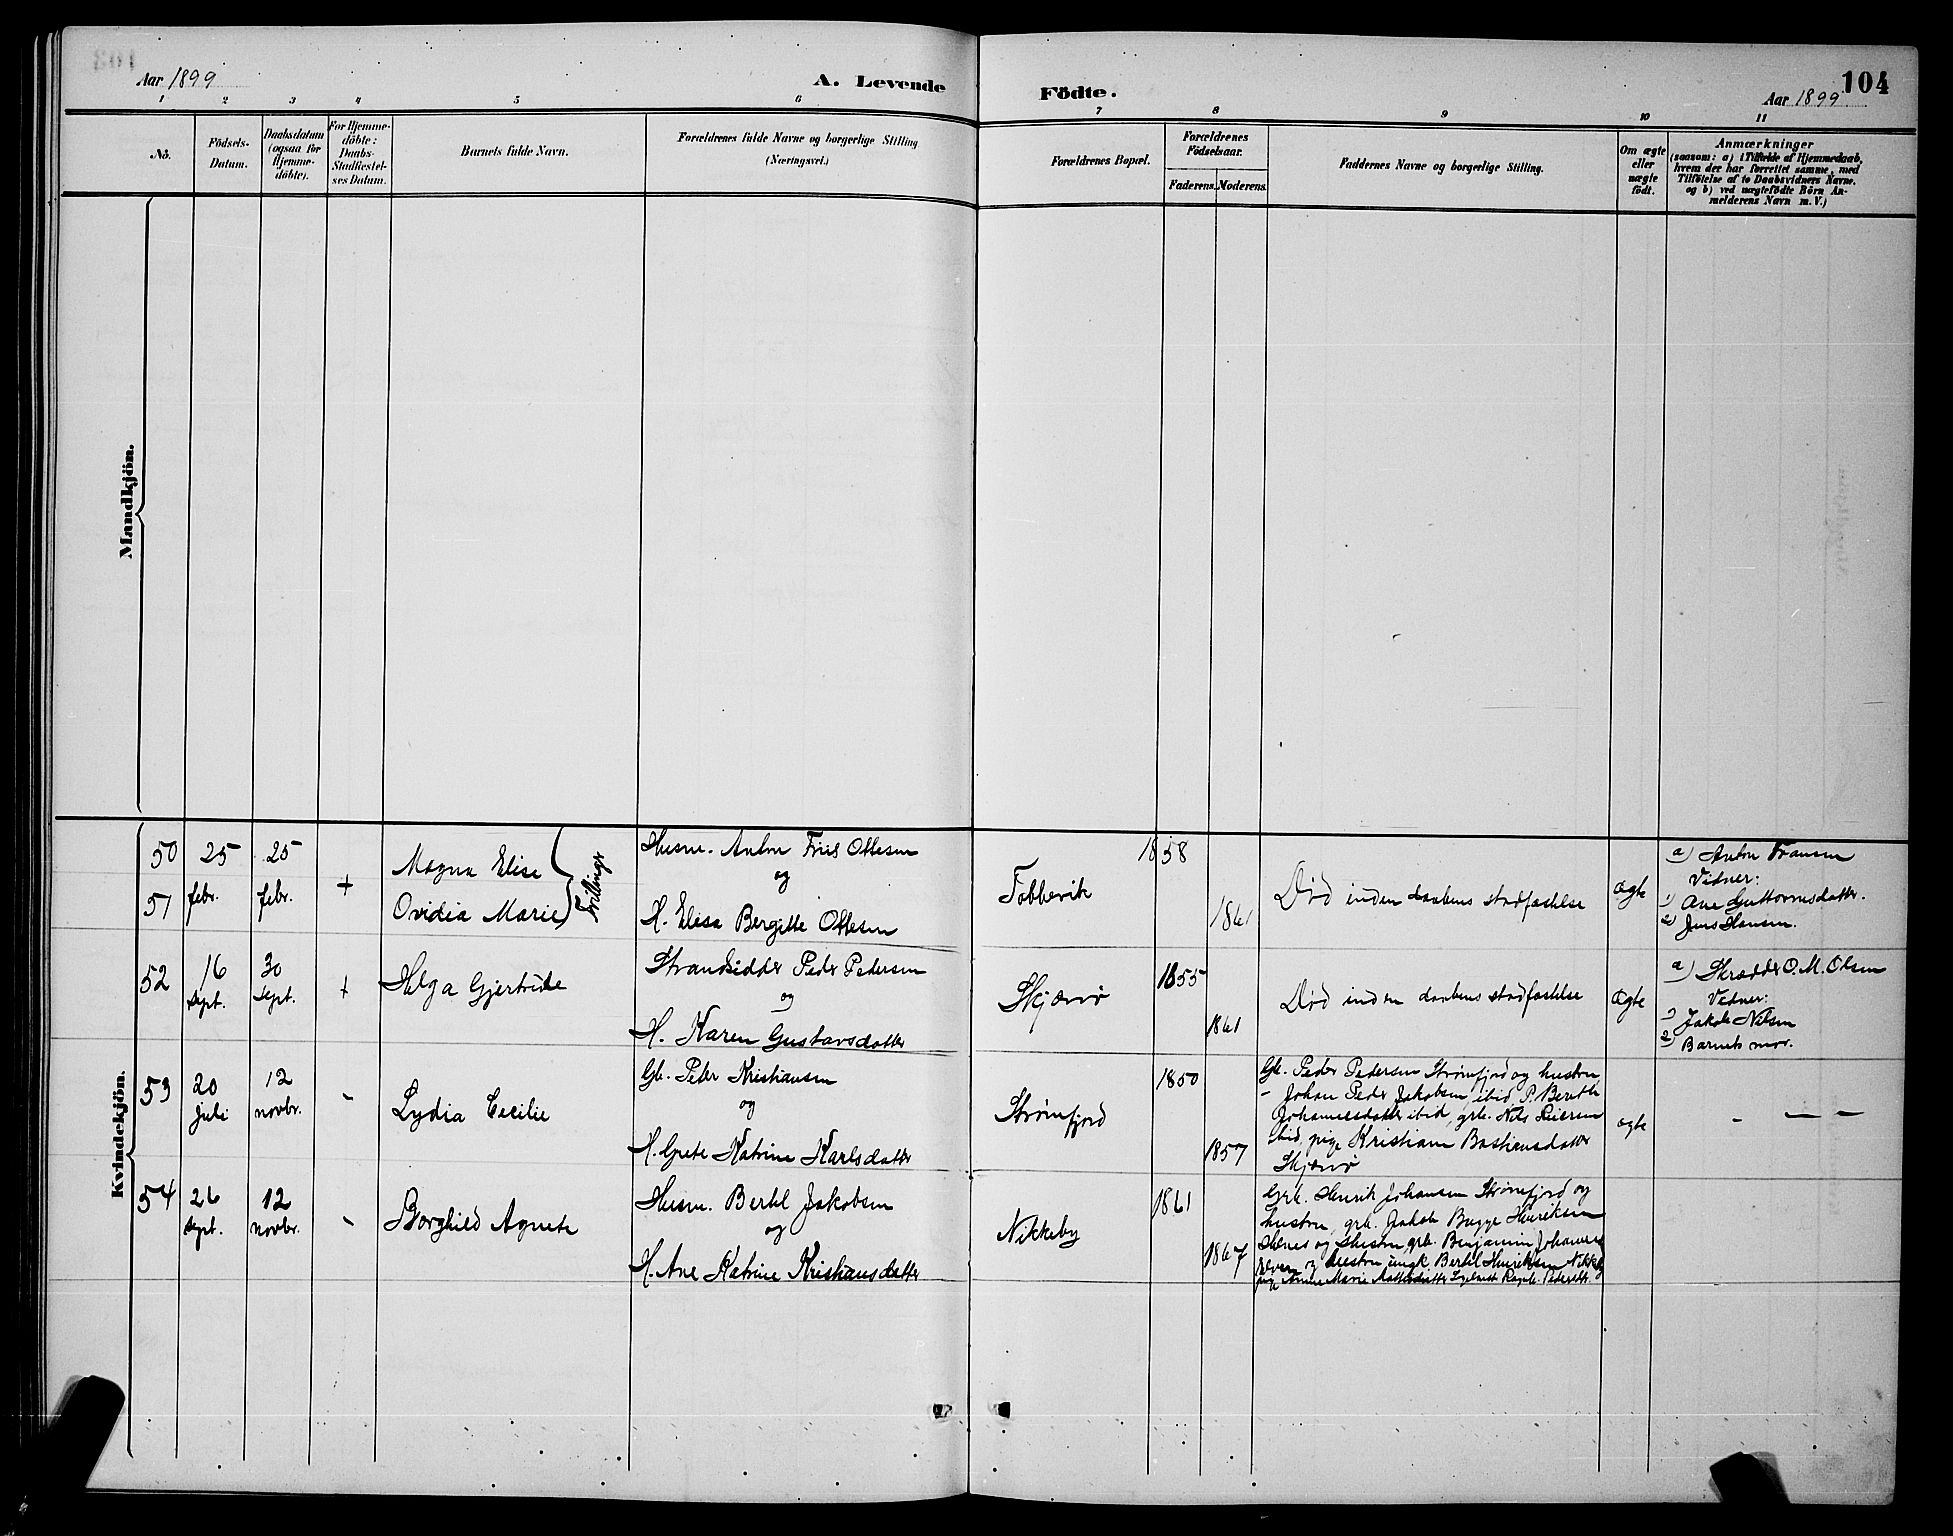 Aar 1899
A. Levende
Födte.
104
Aar 1899
1 2 3 4 5 6 7 8 9 10 11
No.
Födsels-
Datum.
Daabsdatum
(ogsaa for
Hjemme-
döbte).
For Hjemme-
döbte:
Daabs-
Stadfæstel-
ses Datum.
Barnets fulde Navn.
Forældrenes fulde Navne og borgerlige Stilling
(Næringsvei.)
Forældrenes Bopæl.
Forældrenes
Födselsaar.
Faderens. Moderens.
Faddernes Navne og borgerlige Stilling.
Om ægte
eller
uægte
födt.
Anmærkninger
(saasom: a) i Tilfælde af Hjemmedaab,
hvem der har forrettet samme, med
Tilföielse af to Daabsvidners Navne,
og b) ved uægtefödte Börn An-
melderens Navn m. V.)
Mandkjön.
Kvindekjön.
50
51
25
febr.
25
febr.
+
Magna Elise
Ovidia Marie
Husm. Anton Friis Ottesen
og
H. Elisa Bergitte Ottesen
1858
1861
Død inden daabens stadfæstelse
ægte
a) Anton Fransen
Vidner:
1) Ane Guttormsdatter.
2) Jens Hansen.
52
16
sept.
30
sept.
+
Helga Gjertrude
Strandsidder Peder Pedersen
og
H. Karen Gustavsdatter
Skjærvø
1855
1861
Død inden daabens stadfæstelse
ægte
a) Skrædder O. M. Olsen
Vidner:
1) Jakob Nilsen
2) Barnets mor.
53
20
juli
12
novbr.
-
Lydia Cecilie
Gb. Peder Kristiansen
og
H. Grete Katrine Karlsdatter
Strømfjord
1850
1857
Gb. Peder Pedersen Strømfjord og hustru
- Johan Peder Jakobsen, ibid, P. Berethe
Johannesdatter ibid, grb. Nils
ibid, pige Kristiane Bastiansdatter
Skjærvø
ægte
- - -
54
26
sept.
12
novbr.
-
Borghild Agnete
Husm. Bertel Jakobsen
og
H. Ane Katrine Kristiansdatter
Nikkeby
1861
1867
Grb. Henrik Johansen Strømfjord og
hustru, grb. Jakob Bugge Henriksen
og Hustru, grb. Benjamin
og hustru, ungk. Bertel Henriksen Nikkeby
pige Anne Marie